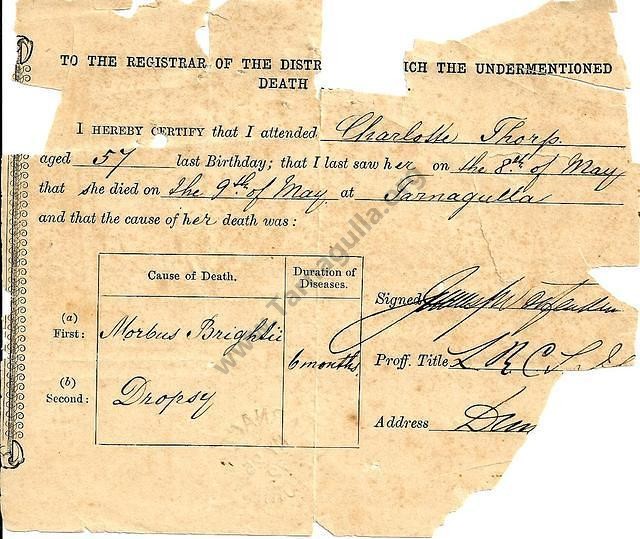 TO THE REGISTRAR OF THE DISTR ICH THE UNDERMENTIONED
DEATH
I HEREBY CERTIFY that I attended Charlotte Thorp.
aged 57 last Birthday; that I last saw her on the 8th of May
that she died on the 9th of May at Tarnagulla
and that the cause of her death was:
Cause of Death. Duration of Diseases.
(a) First: Morbus Brightii 6 months.
(b) Second: Dropsy
Signed
Proff. Title L R C
Address Dun